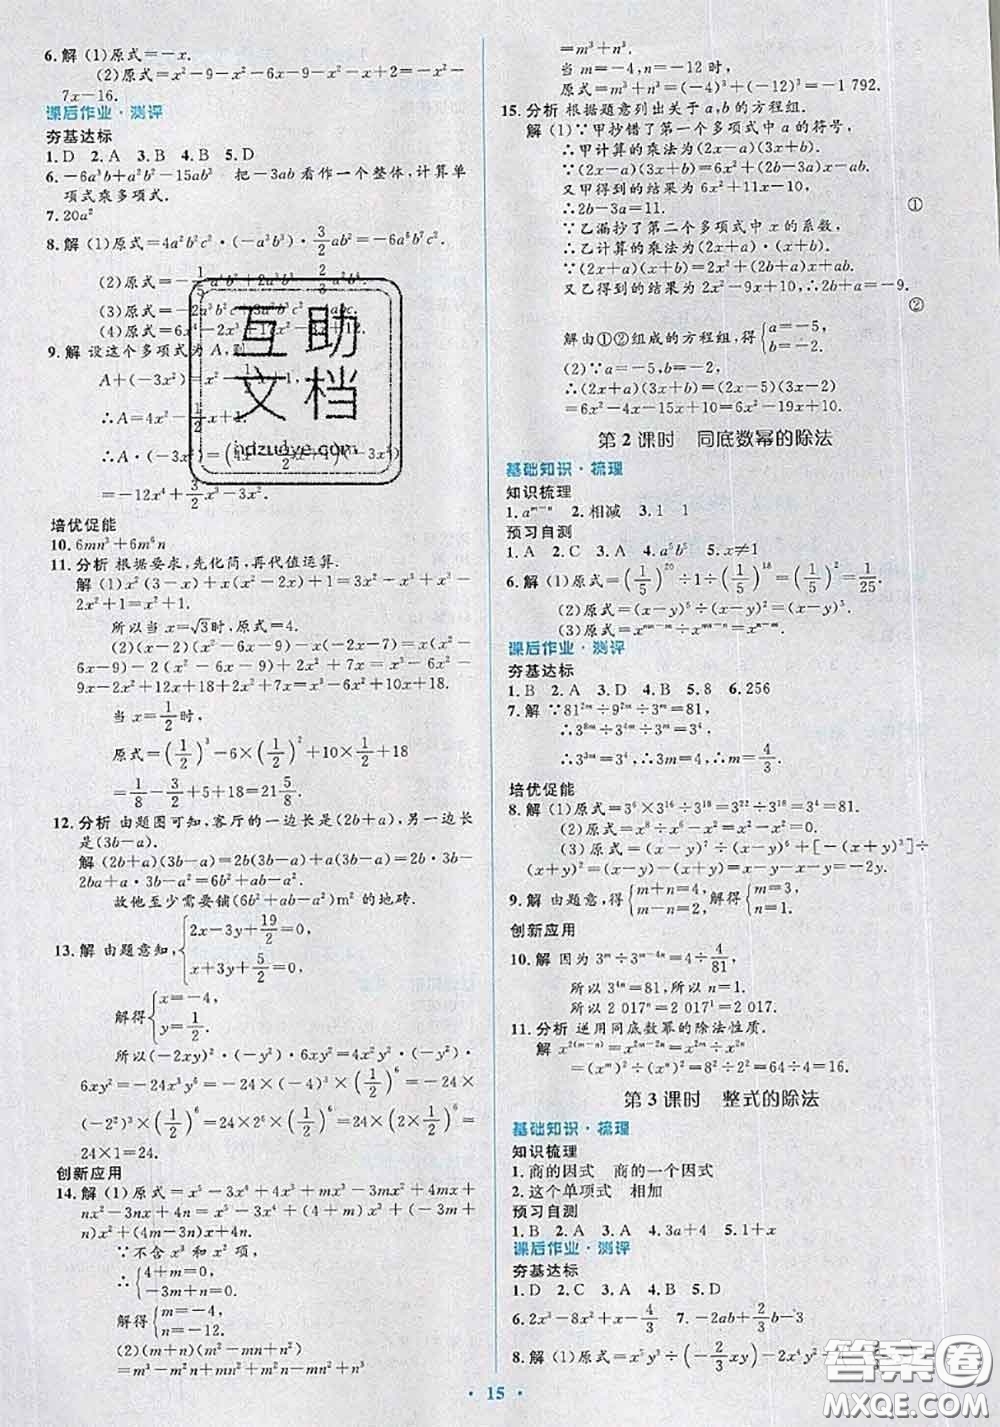 6.解 (1)原式=-x.
(2)原式=x²-9-x²-6x-9-x²-x+2=-x²-
7x-16.
课后作业·测评
夯基达标
1.D 2.A 3.B 4.B 5.D
6.-6a³b+a²b²-15ab² 把-3ab看作一个整体,计算单
项式乘多项式.
7.20a²
8.解 (1)原式=4a²b²c²·(-a³b³)·3/2ab²=-6a⁶b⁷c².
(3)原式=
(4)原式=6x
9.解 设这个多项式为A,则
A+(-3x²)=x²
∴A=4x²-1/2x+1.
∴A·(-3x²)=
(-3x²)
=-12x⁴+3/2x³-3x².
互助
文档
hdzuoye.com
培优促能
10.6mn³+6m⁶n
11.分析 根据要求,先化简,再代值运算.
解 (1)x²(3-x)+x(x²-2x)+1=3x²-x³+x³-
2x²+1=x²+1.
所以当x=√3时,原式=4.
(2)(x-2)(x²-6x-9)-x(x-2x-7)=x(x²-
6x-9)-2(x²-6x-9)-x(x²-2x-15)=x³-6x²-
9x-2x²+12x+18-x³+2x²+15x=x³-6x²+10x+18.
当x=1/2时,
原式=(1/2)³-6×(1/2)²+10×1/2+18
=1/8-3/2+5+18=21 5/8.
12.分析 由题图可知,客厅的一边长是(2b+a),另一边长
是(3b-a).
解 (2b+a)(3b-a)=2b(3b-a)+a(3b-a)=2b·3b-
2ba+a·3b-a²=6b²+ab-a².
故他至少需要铺(6b²+ab-a²)m²的地砖.
13.解 由题意知,{2x-3y+19/2=0, x+3y+5/2=0.
解得{x=-4, y=1/2.
所以(-2xy)²·(-y²)·6xy²=4x²y²·(-y²)·
6xy²=-24x³y⁶=-24×(-4)³×(1/2)⁶=24×4³×
(1/2)⁶=24×2⁶×(1/2)⁶=24×(2×1/2)⁶=
24×1=24.
创新应用
14.解 (1)原式=x⁵-3x⁴+4x³+mx³-3mx²+4mx+
nx²-3nx+4n=x⁵-3x⁴+(4+m)x³+(-3m+
n)x²+(4m-3n)x+4n.
∵不含x³和x²项,
∴{4+m=0, -3m+n=0.
解得{m=-4, n=-12.
(2)(m+n)(m²-mn+n²)
=m³-m²n+mn²+m²n-mn²+n³
=m³+n³.
当m=-4,n=-12时,
原式=(-4)³+(-12)³=-1 792.
15.分析 根据题意列出关于a,b的方程组.
解 (1)∵甲抄错了第一个多项式中a的符号,
∴甲计算的乘法为(2x-a)(3x+b).
∵(2x-a)(3x+b)=6x²+(2b-3a)x-ab.
又甲得到的结果为6x²+11x-10,
∴2b-3a=11. ①
∵乙漏抄了第二个多项式中x的系数,
∴乙计算的乘法为(2x+a)(x+b).
∵(2x+a)(x+b)=2x²+(2b+a)x+ab.
又乙得到的结果为2x²-9x+10,∴2b+a=-9.
②
解由①②组成的方程组,得{a=-5, b=-2.
(2)∵a=-5,b=-2,
∴(2x+a)(3x+b)=(2x-5)(3x-2)
=6x²-4x-15x+10=6x²-19x+10.
第2课时 同底数幂的除法
基础知识·梳理
知识梳理
1.aᵐ⁻ⁿ 2.相减 3.1 1
预习自测
1.A 2.C 3.A 4.a⁵b⁵ 5.x≠1
6.解 (1)原式=(1/5)²⁰÷1÷(1/5)¹⁸=(1/5)²=1/25.
(2)原式=(x-y)⁵÷(x-y)²=(x-y)³.
课后作业·测评
夯基达标
1.B 2.A 3.D 4.B 5.8 6.256
7.解 ∵81²ᵐ÷9²ᵐ÷3ᵐ=81,
∴3⁸ᵐ÷3⁴ᵐ÷3ᵐ=3⁴.
∴3³ᵐ=3⁴,∴3m=4,∴m=4/3.
培优促能
8.解 (1)原式=3⁶×3¹⁶÷3¹⁸=3²²÷3¹⁸=3⁴=81.
(2)原式=x⁸÷x⁶÷x²=x²÷x²=1.
(3)原式=(x-y)⁷÷(x-y)⁶+[-(x+y)³]÷
(x+y)²=(x-y)-(x+y)=x-y-x-y=-2y.
9.解 由题意,得{m+n=4, m-n=2. 解得{m=3, n=1.
创新应用
10.解 因为3ᵐ÷3ᵐ⁻⁴ⁿ=4÷4/81,
所以3⁴ⁿ=81,所以n=1.
所以2 017ⁿ=2 017¹=2 017.
11.分析 逆用同底数幂的除法性质.
解 x²⁽ᵐ⁻ⁿ⁾=x²ᵐ⁻²ⁿ=x²ᵐ÷x²ⁿ
=(xᵐ)²÷(xⁿ)²=8²÷2²=64÷4=16.
第3课时 整式的除法
基础知识·梳理
知识梳理
1.商的因式 商的一个因式
2.这个单项式 相加
预习自测
1.B 2.A 3.A 4.3a+4 5.1+x
课后作业·测评
夯基达标
1.D 2.C 3.A 4.B 5.D
6.2x³-8x²+x-4/3 7.-2ab+2/3b-3
8.解 (1)原式=x⁵y³÷(-2/3xy)-2x⁴y³÷
答案圈
MXQE.COM
· 15 ·